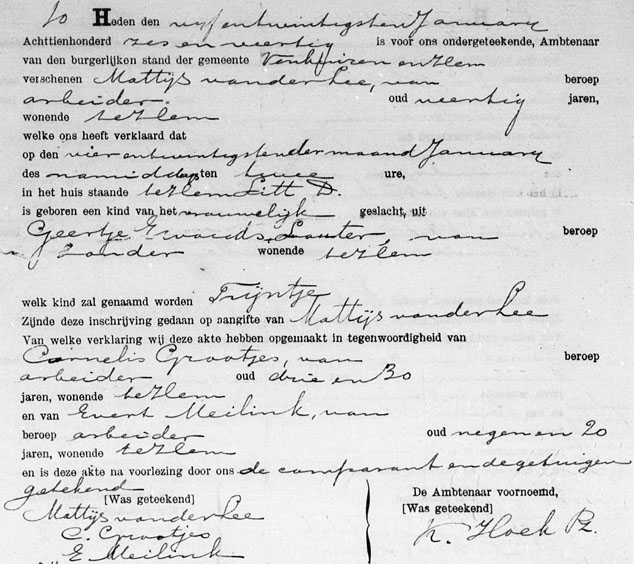 10 Heden den vyf en twintigsten January
Achttienhonderd zes en veertig is voor ons ondergeteekende, Ambtenaar
van den burgerlijken stand der gemeente Venhuizen en Hem
verschenen Mattijs van der Lee, van beroep
arbeider. oud veertig jaren,
wonende te Hem
welke ons heeft verklaard dat
op den vier en twintigsten der maand January
des namiddags ten twee ure,
in het huis staande te Hem Litt D.
is geboren een kind van het vrouwelijk geslacht, uit
Geertje Sauter, van beroep
zonder wonende te Hem
welk kind zal genaamd worden Trijntje
Zijnde deze inschrijving gedaan op aangifte van Mattijs van der Lee
Van welke verklaring wij deze akte hebben opgemaakt in tegenwoordigheid van
Cornelis Grootjes, van beroep
arbeider oud drie en 30
jaren, wonende te Hem
en van Evert Meilink, van
beroep arbeider oud negen en 20
jaren, wonende te Hem
en is deze akte na voorlezing door ons de comparant en de getuigen
getekend
[Was geteekend] De Ambtenaar voornoemd,
Mattijs van der Lee [Was geteekend]
C. Grootjes K. Hoek Pz.
E Meilink